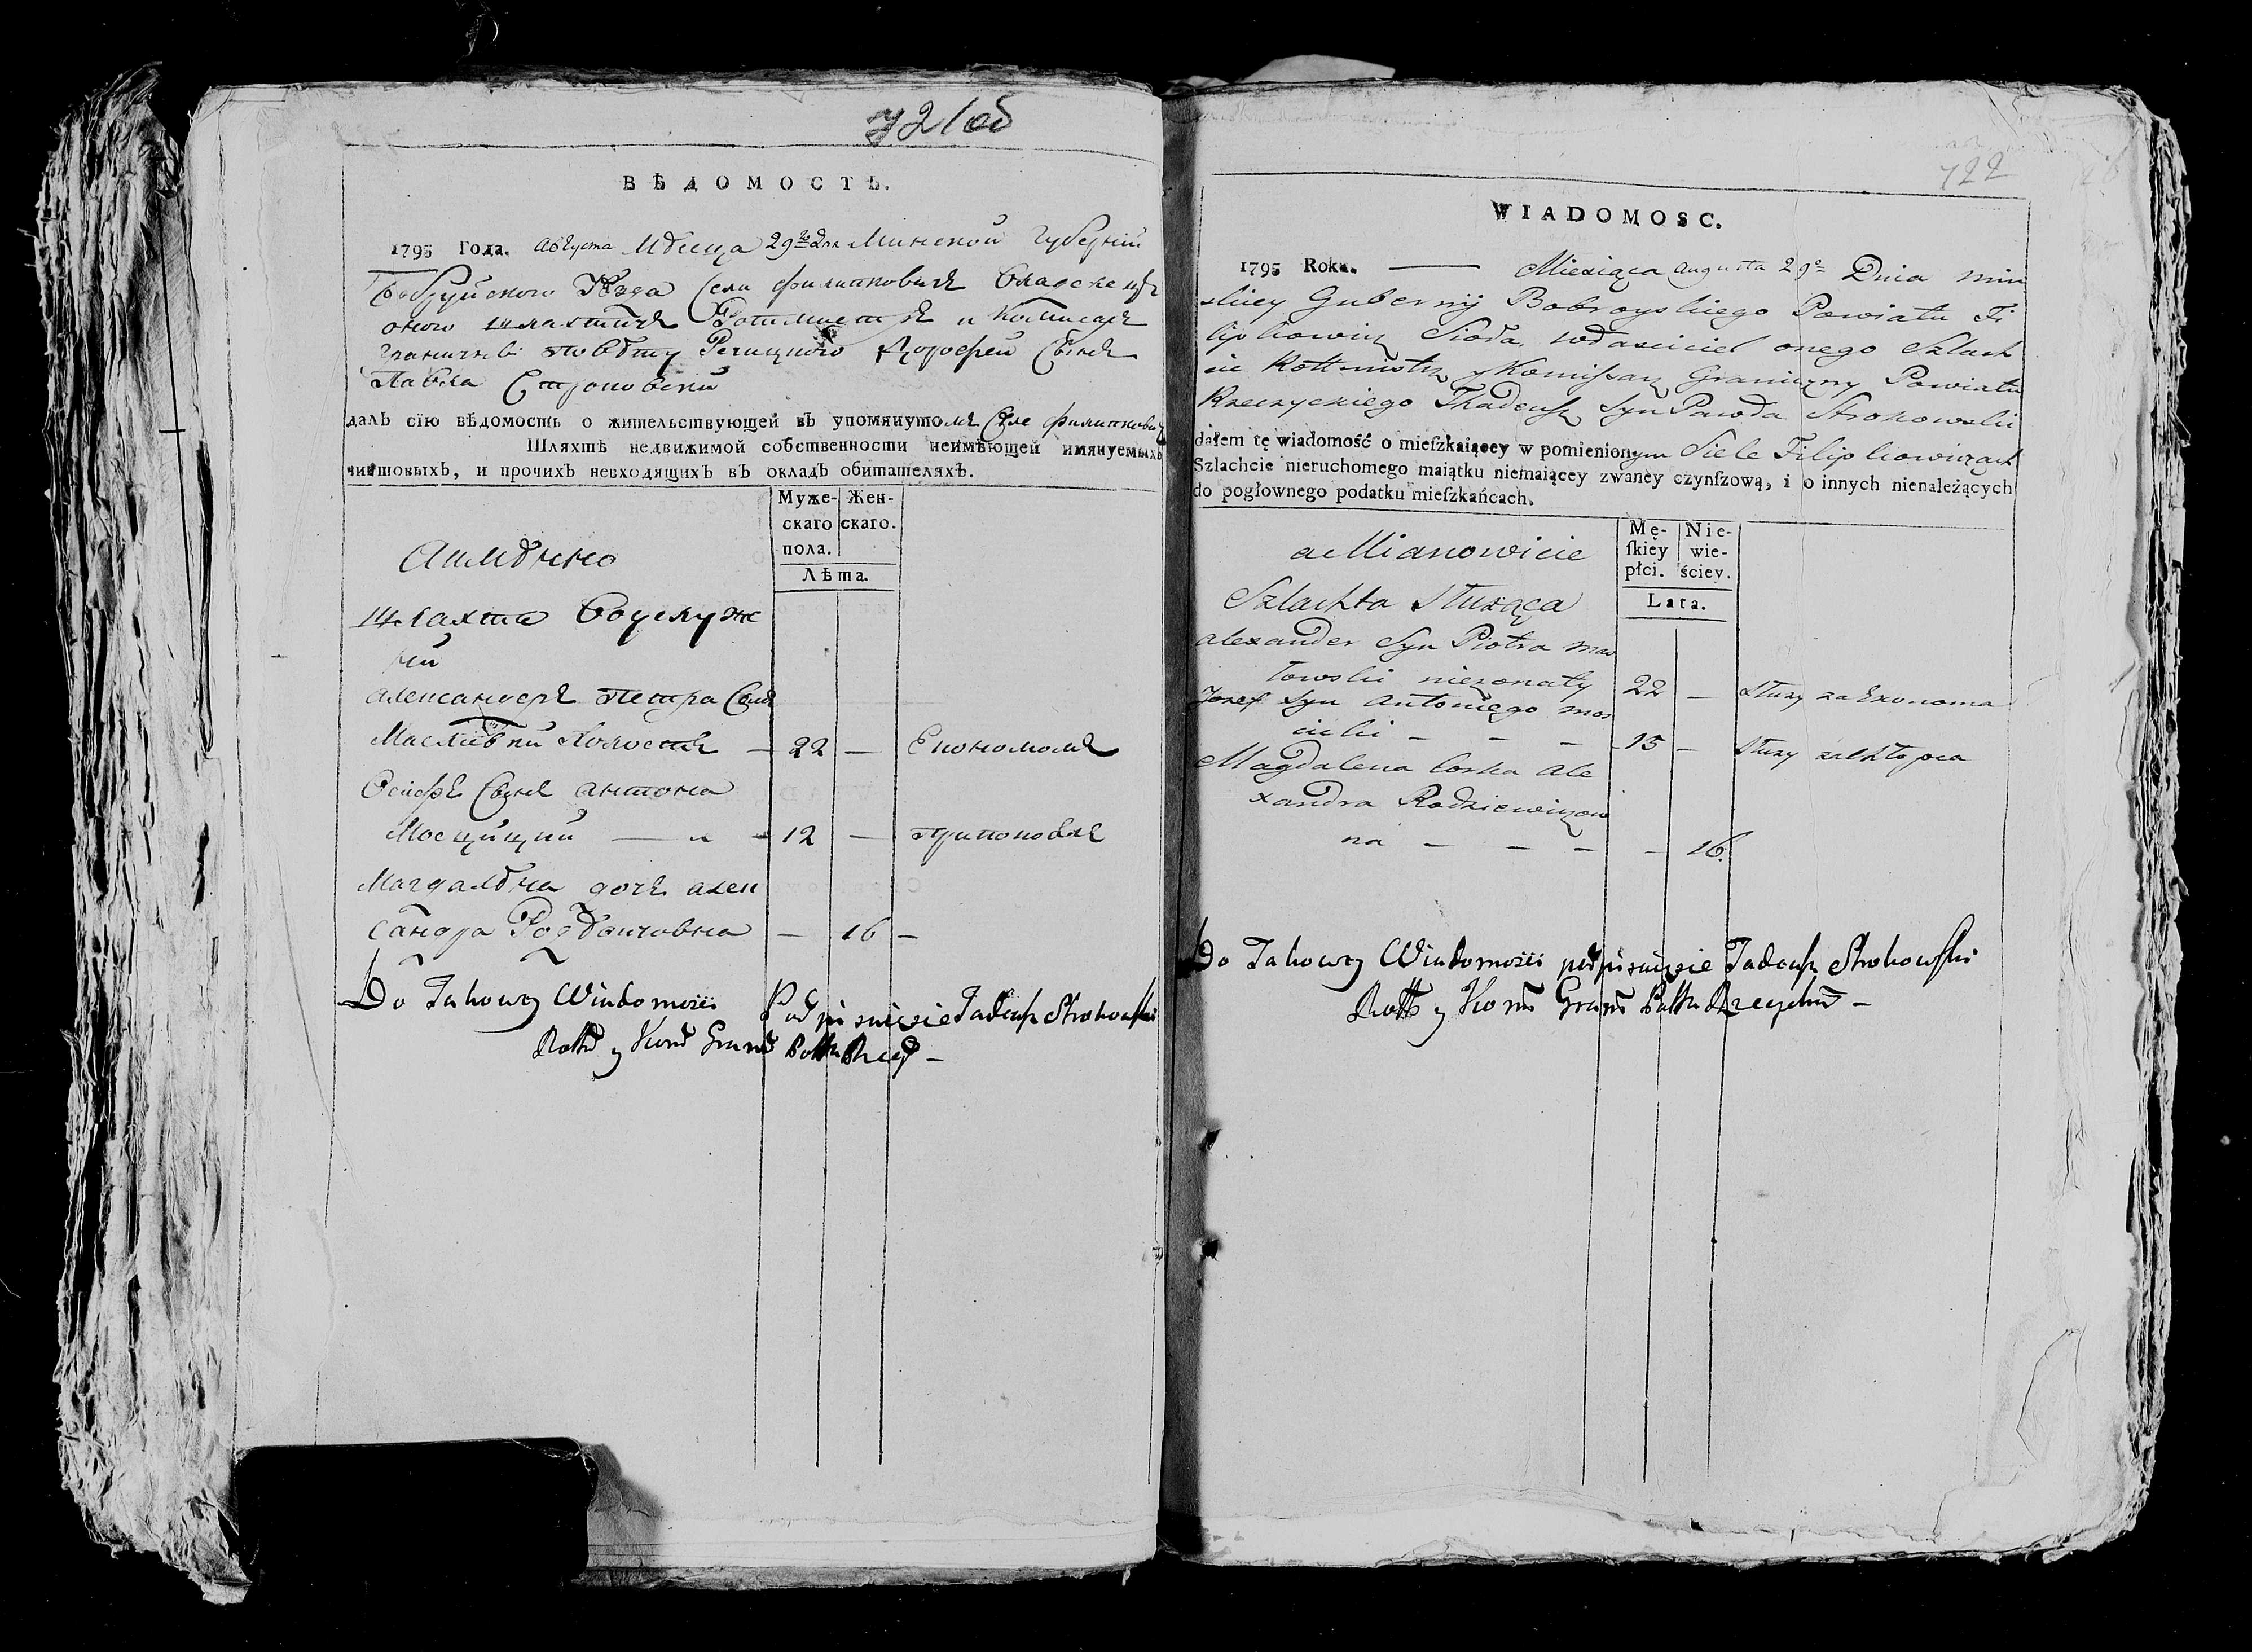 721об
ВѢДОМОСТЬ.
1795 Года. Августа Мѣсяца 29го Дня Минской Губерніи
Бобруйского Уѣзда Села Филипковичъ Владѣлецъ
оного Шляхтичъ Ротмистръ и Комисаръ
Граничны повѣту Речицкого Сынъ
Павла Строковски
далъ сїю вѣдомость о жительствующей въ упомянутомъ Селе Филипкови
Шляхтѣ недвижимой собственности неимѣющей имянуемыхъ
чиншовыхъ, и прочихъ невходящихъ въ окладъ обитателяхъ.
Муже- Жен-
скаго скаго.
пола.
Лѣта.
Аимѣнно
Шляхта Воуслуж
ніи
Александеръ Петра Сынъ
Масловски Холостъ — 22 — Економомъ
Осифъ Сынъ Антона
Мосціцки — 12 —
Магдалѣна дочь Алек
сандра Родзѣвичовна — 16 —
Do Takowey Wiadomości Podpisuię się Tadeusz Strokowski
Rottm y Kom Gran Powtu Rzecz —
722
WIADOMOSC.
1795 Roku. — Miesiąca Augusta 29o Dnia Min
skiey Gubernij Bobroyskiego Powiatu Fi
lipkowicz Sioła, właściciel onego Szlach
cic Rottmistrz y Komissarz Graniczny Powiatu
Rzeczyckiego Thadeusz Syn Pawła Strokowski
dałem tę wiadomość o mieſzkaiącey w pomienionym Siele Filipkowiczach
Szlachcie nieruchomego maiątku niemaiącey zwaney czynſzową, i o innych nienależących
do pogłownego podatku mieſzkańcach.
Mę- Nie-
ſkiey wie-
płci. ściey.
Lata.
a Mianowicie
Szlachta Służąca
Alexander Syn Piotra Mas
łowski nieżonaty 22 — służy za Ekonoma
Jozef Syn Antoniego Mos
cicki — — — 15 — służy za Chłopca
Magdalena Corka Ale
xandra Rodziewiczow
na — — — — 16.
Do Takowey Wiadomości podpisuię się Tadeusz Strokowski
Rottm y Kom Gran Powtu Rzeczycki —